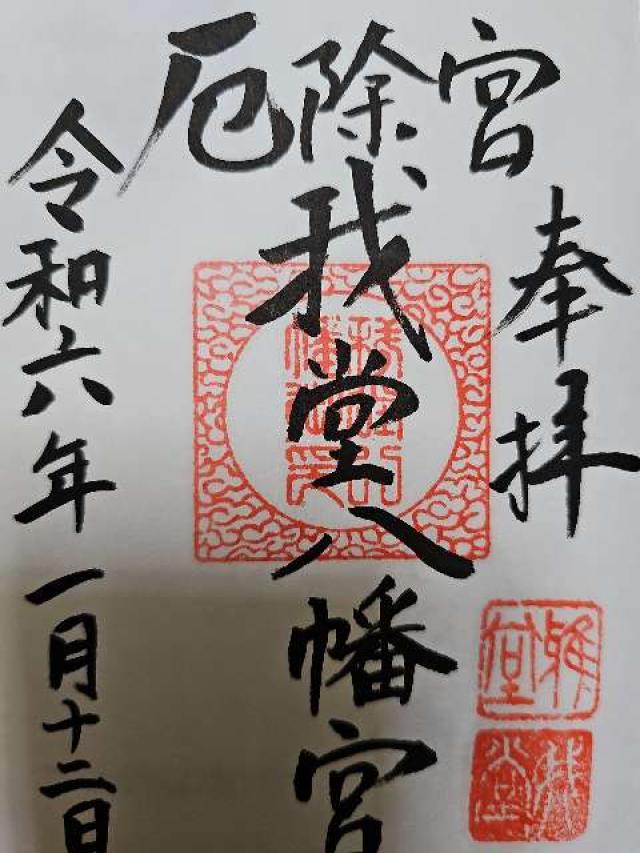 厄除宮
奉拝
我堂八幡宮
令和六年一月十二日
雅堂
我堂